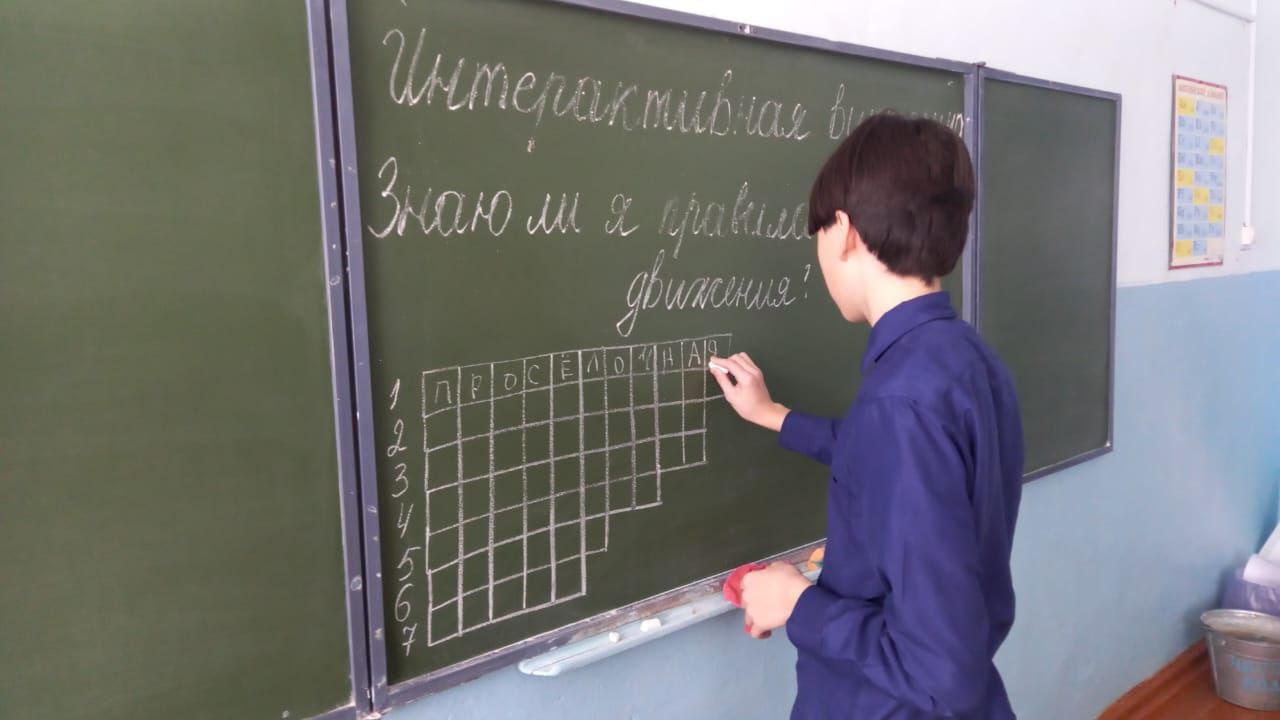 Интерактивная
Знаю ли я правила
движения?
1 ПРОСЁЛОЧНАЯ
2
3
4
5
6
7